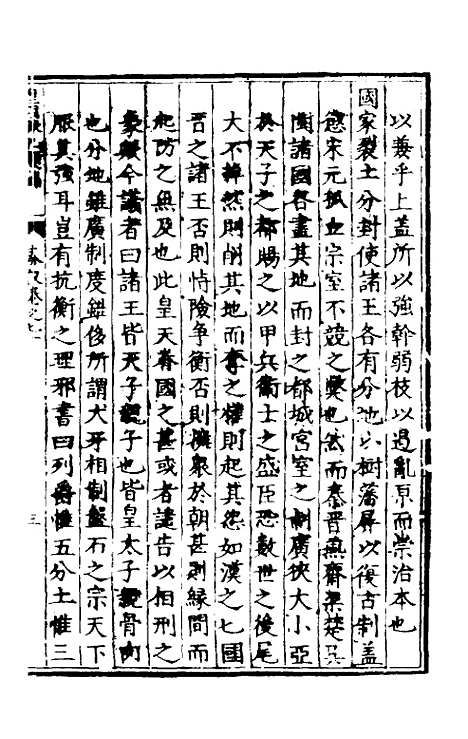 以義乎上盖所以強幹弱枝以遏亂原而崇治本也
國家裂土分封使諸王各有分地以樹藩屏以復古制盖
懲宋元孤立宗室不競之弊也然而秦晋燕齊梁楚吴
閩諸國各盡其地而封之都城宮室之制廣狹大小亞
於天子之都賜之以甲兵衛士之盛臣恐數世之後尾
大不掉然則削其地而奪之權則起其怨如漢之七國
晋之諸王否則恃險争衡否則擁衆於朝甚則縁間而
起防之無及也此皇天眷國之甚或者譴告以相刑之
象歟今議者曰諸王皆天子親子也皆皇太子親骨肉
也分地雖廣制度雖侈所謂犬牙相制盤石之宗天下
服其強耳豈有抗衡之理邪書曰列爵惟五分土惟三
三